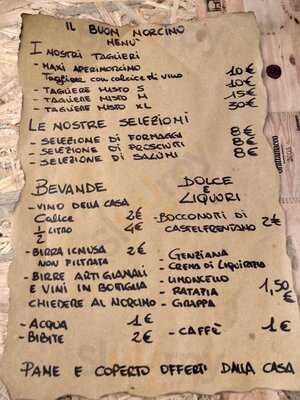 IL BUON NORCINO
MENU'
I NOSTRI TAGLIERI
- MAXI APERINORCINO 10€
Tagliere con calice di vino
- TAGLIERE MISTO S 10€
- TAGLIERE MISTO M 15€
- TAGLIERE MISTO XL 30€
LE NOSTRE SELEZIONI
- SELEZIONE DI FORMAGGI 8€
- SELEZIONE DI PROSCIUTTI 8€
- SELEZIONE DI SALUMI 8€
BEVANDE
- VINO DELLA CASA
Calice 2€
1/2 LITRO 4€
- BIRRA ICNUSA 2€
NON FILTRATA
- BIRRE ARTIGIANALI
E VINI IN BOTTIGLIA
CHIEDERE AL NORCINO
- ACQUA 1€
- BIBITE 2€
DOLCE
E
LIQUORI
- BOCCONOTTI DI 2€
CASTELFRENTANO
- GENZIANA
- CREMA DI LIQUIRIZIA
- LIMONCELLO
- RATAFIA 1,50€
- GRAPPA
- CAFFÈ 1€
PANE E COPERTO OFFERTI DALLA CASA